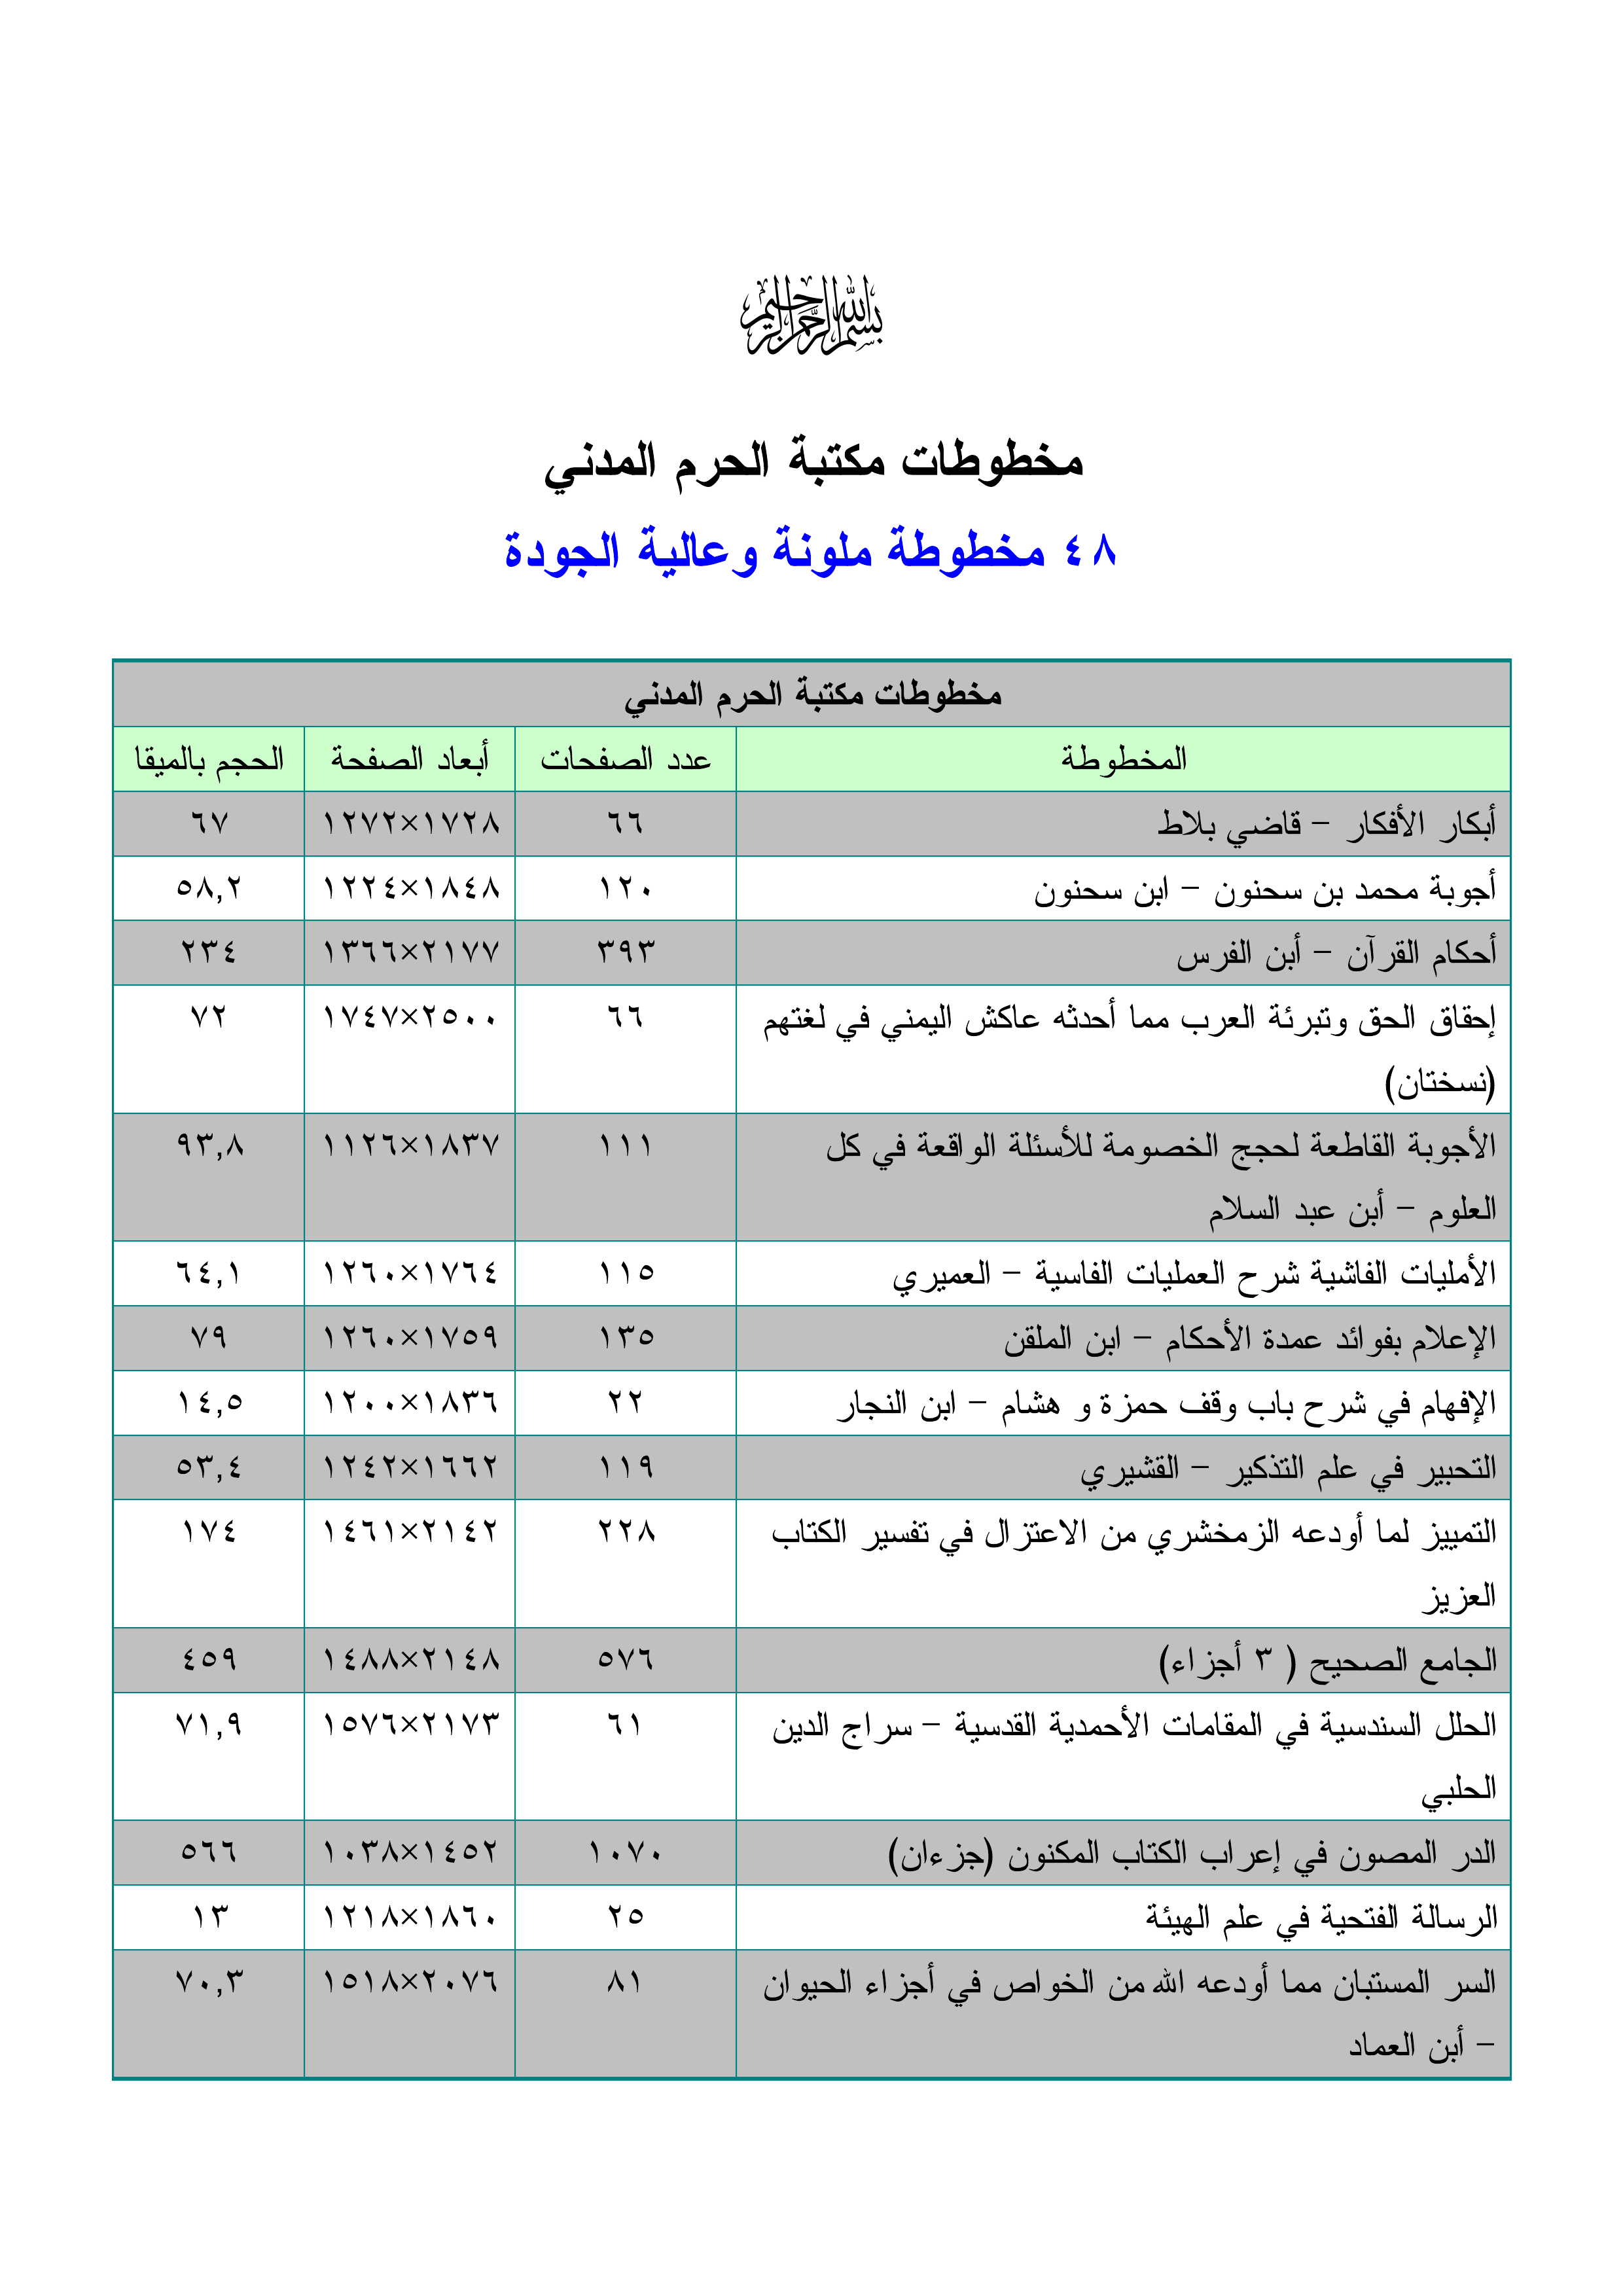 بسم الله الرحمن الرحيم
مخطوطات مكتبة الحرم المدني
٤٨ مخطوطة ملونة وعالية الجودة
مخطوطات مكتبة الحرم المدني
المخطوطة عدد الصفحات أبعاد الصفحة الحجم بالميقا
أبكار الأفكار – قاضي بلاط ٦٦ ١٧٢٨×١٢٧٢ ٦٧
أجوبة محمد بن سحنون – ابن سحنون ١٢٠ ١٨٤٨×١٢٢٤ ٥٨,٢
أحكام القرآن – أبن الفرس ٣٩٣ ٢١٧٧×١٣٦٦ ٢٣٤
إحقاق الحق وتبرئة العرب مما أحدثه عاكش اليمني في لغتهم ٦٦ ٢٥٠٠×١٧٤٧ ٧٢
(نسختان)
الأجوبة القاطعة لحجج الخصومة للأسئلة الواقعة في كل ١١١ ١٨٣٧×١١٢٦ ٩٣,٨
العلوم – أبن عبد السلام
الأمليات الفاشية شرح العمليات الفاسية – العميري ١١٥ ١٧٦٤×١٢٦٠ ٦٤,١
الإعلام بفوائد عمدة الأحكام – ابن الملقن ١٣٥ ١٧٥٩×١٢٦٠ ٧٩
الإفهام في شرح باب وقف حمزة و هشام – ابن النجار ٢٢ ١٨٣٦×١٢٠٠ ١٤,٥
التحبير في علم التذكير – القشيري ١١٩ ١٦٦٢×١٢٤٢ ٥٣,٤
التمييز لما أودعه الزمخشري من الاعتزال في تفسير الكتاب ٢٢٨ ٢١٤٢×١٤٦١ ١٧٤
العزيز
الجامع الصحيح ( ٣ أجزاء) ٥٧٦ ٢١٤٨×١٤٨٨ ٤٥٩
الحلل السندسية في المقامات الأحمدية القدسية – سراج الدين ٦١ ٢١٧٣×١٥٧٦ ٧١,٩
الحلبي
الدر المصون في إعراب الكتاب المكنون (جزءان) ١٠٧٠ ١٤٥٢×١٠٣٨ ٥٦٦
الرسالة الفتحية في علم الهيئة ٢٥ ١٨٦٠×١٢١٨ ١٣
السر المستبان مما أودعه الله من الخواص في أجزاء الحيوان ٨١ ٢٠٧٦×١٥١٨ ٧٠,٣
– أبن العماد